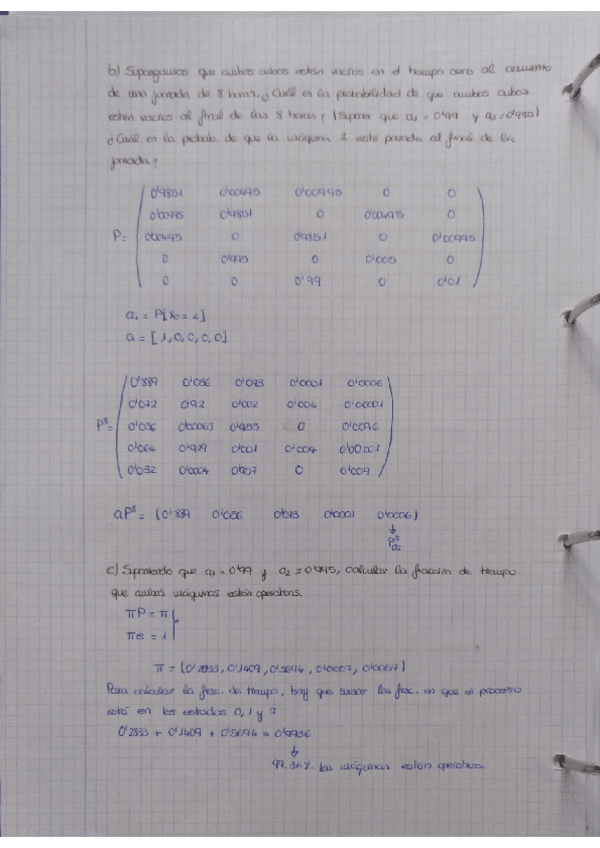 b) Supongamos que ambos cubos están vacíos en el tiempo cero al comienzo
de una jornada de 8 horas. ¿Cuál es la probabilidad de que ambos cubos
estén vacíos al final de las 8 horas? (Suponer que a₁ = 0'99 y a₂ = 0'995)
¿Cuál es la probab. de que la máquina 2 esté parada al final de la
jornada?
0'9851 0'00495 0'00995 0 0
0'00995 0'9851 0 0'00495 0
P= 0'00495 0 0'9851 0 0'00995
0 0'995 0 0'005 0
0 0 0'99 0 0'01
aᵢ = P[X₀ = i]
a = [1,0,0,0,0]
0'889 0'036 0'073 0'0001 0'0006
0'072 0'92 0'002 0'004 0'00001
P⁸= 0'036 0'00063 0'953 0 0'0096
0'064 0'929 0'001 0'004 0'00001
0'032 0'0004 0'957 0 0'009
aP⁸ = (0'889 0'036 0'073 0'0001 0'0006)
↓
c) Suponiendo que a₁ = 0'99 y a₂ = 0'995, calcular la fracción de tiempo
que ambas máquinas están operativas.
πP = π
πe = 1
π = (0'2833, 0'1409, 0'5694, 0'0007, 0'0057)
Para calcular la frac. de tiempo, hay que sumar las frac. en que el proceso
está en los estados 0, 1 y 2
0'2833 + 0'1409 + 0'5694 = 0'9936
↓
99.36% las máquinas están operativas.